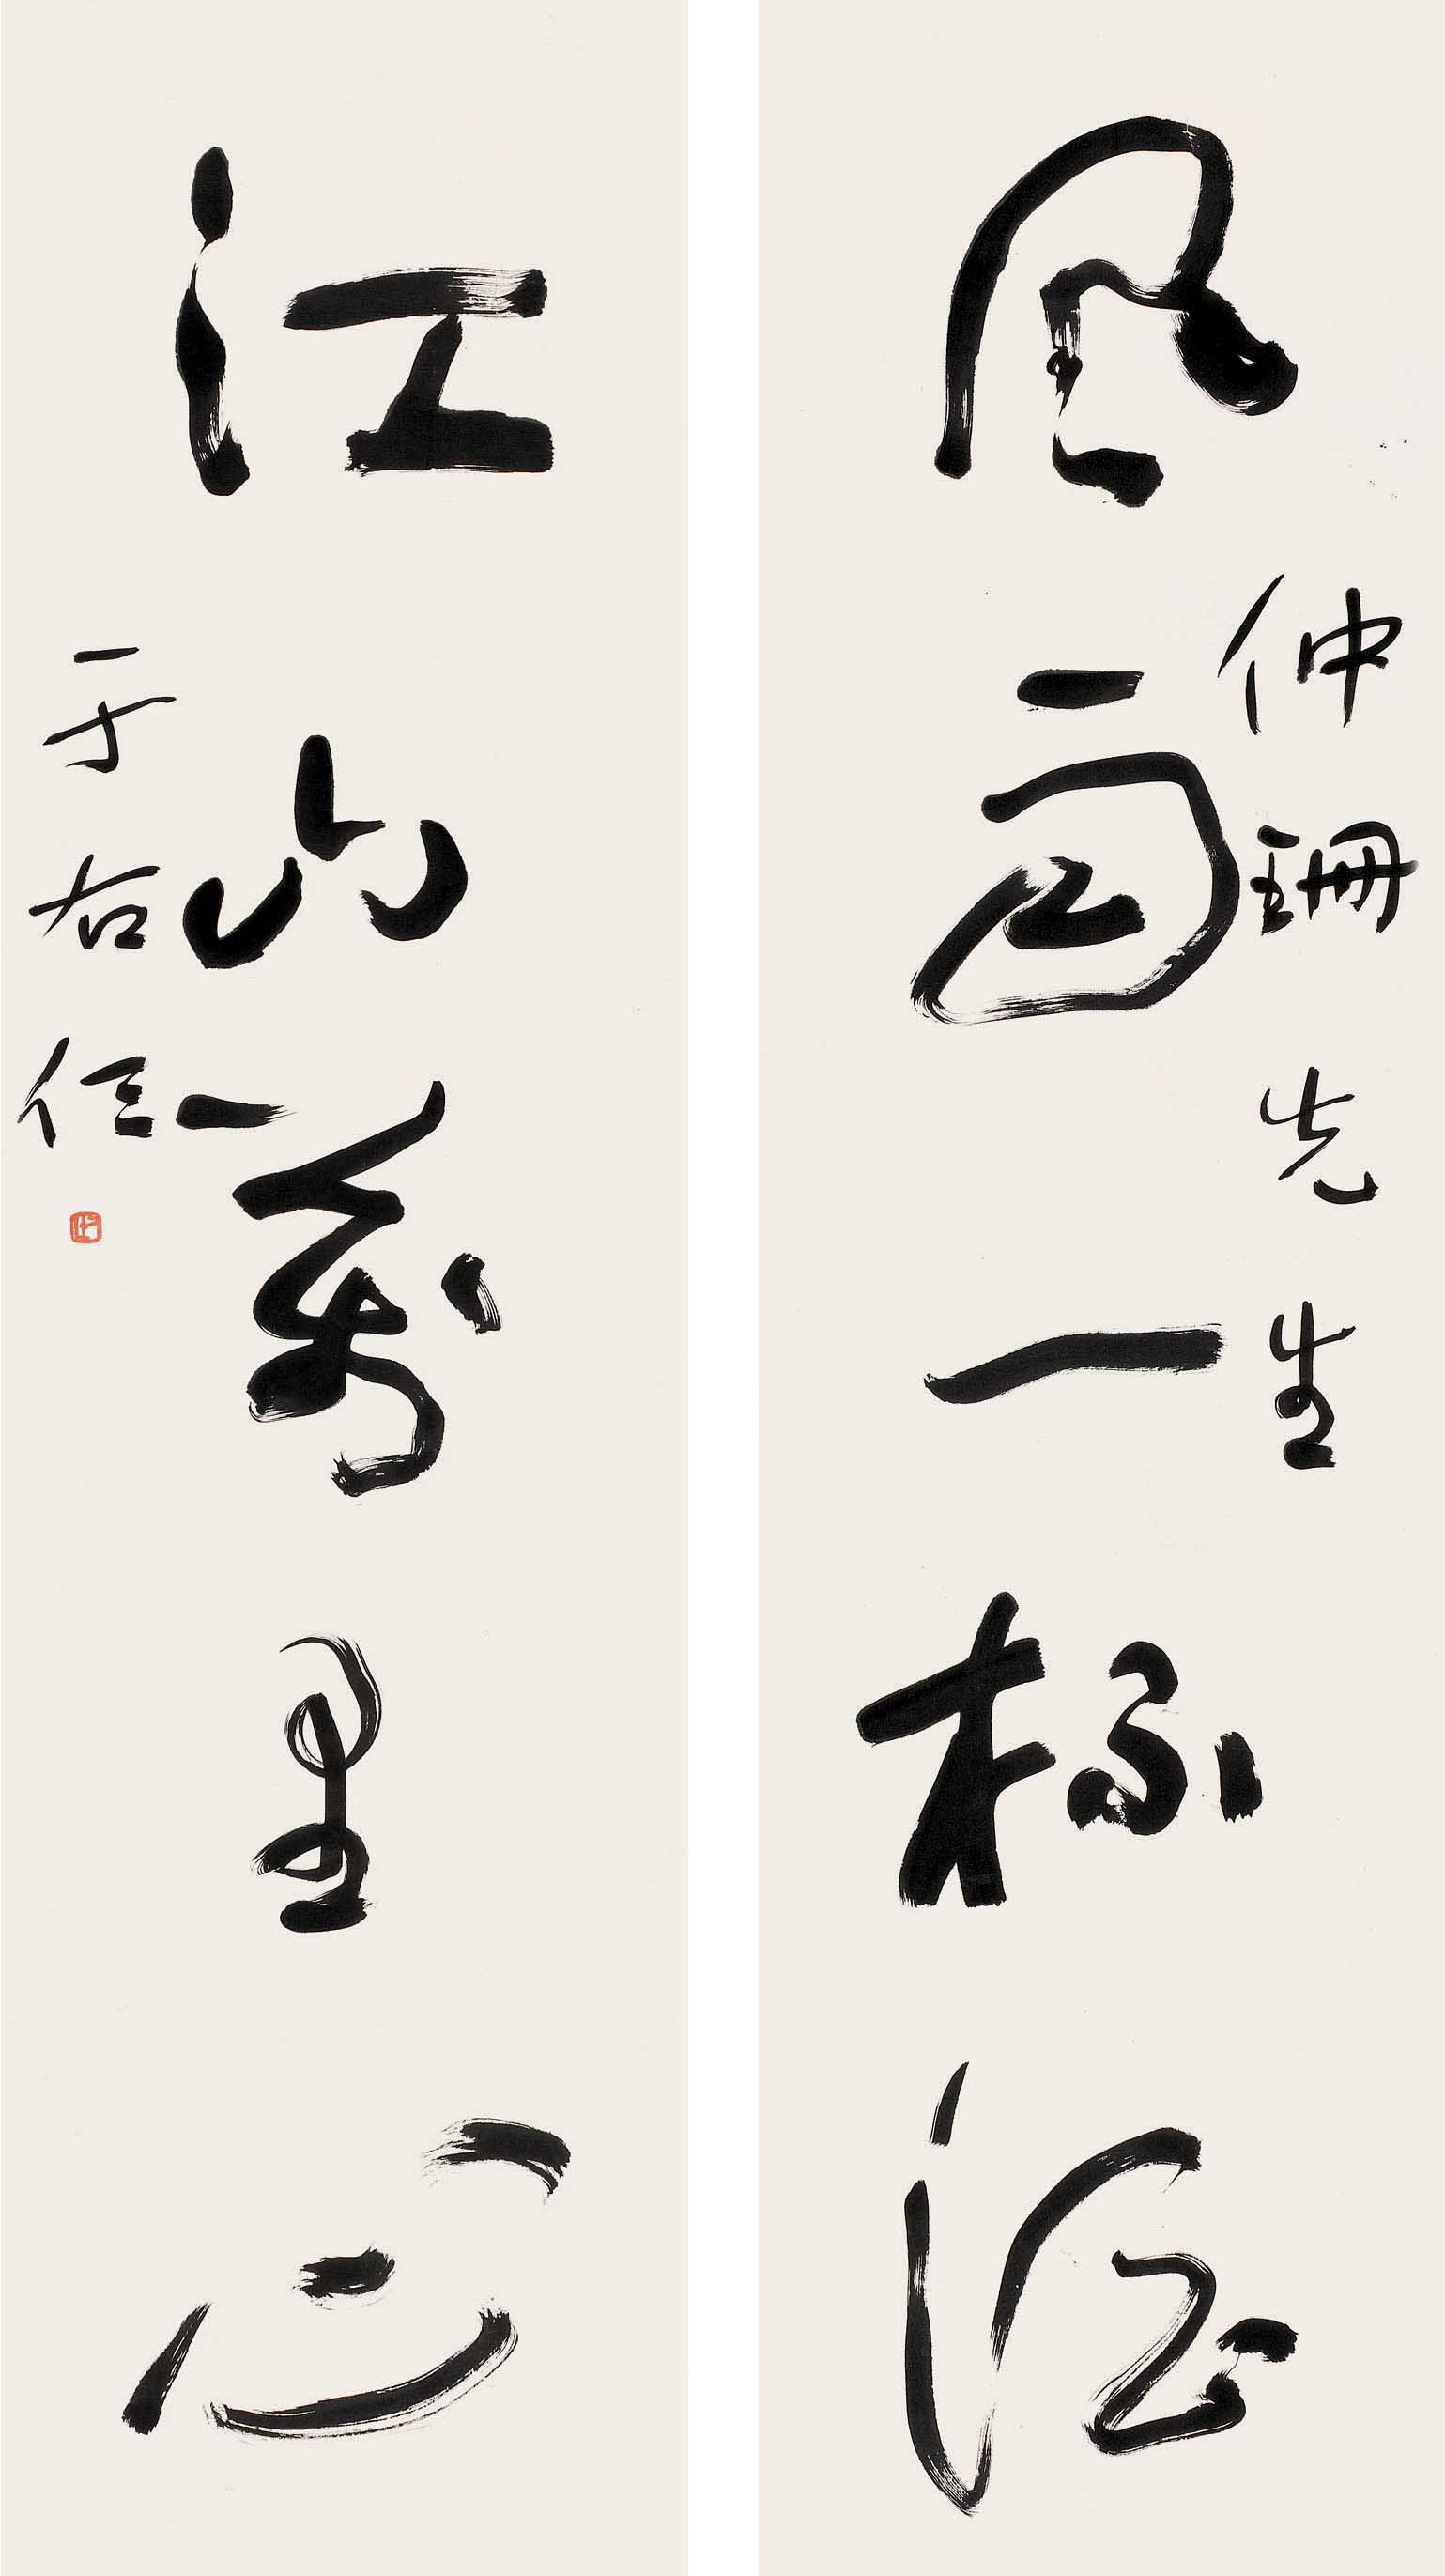 風雨一杯酒
仲珊先生
江山萬里心
于右任